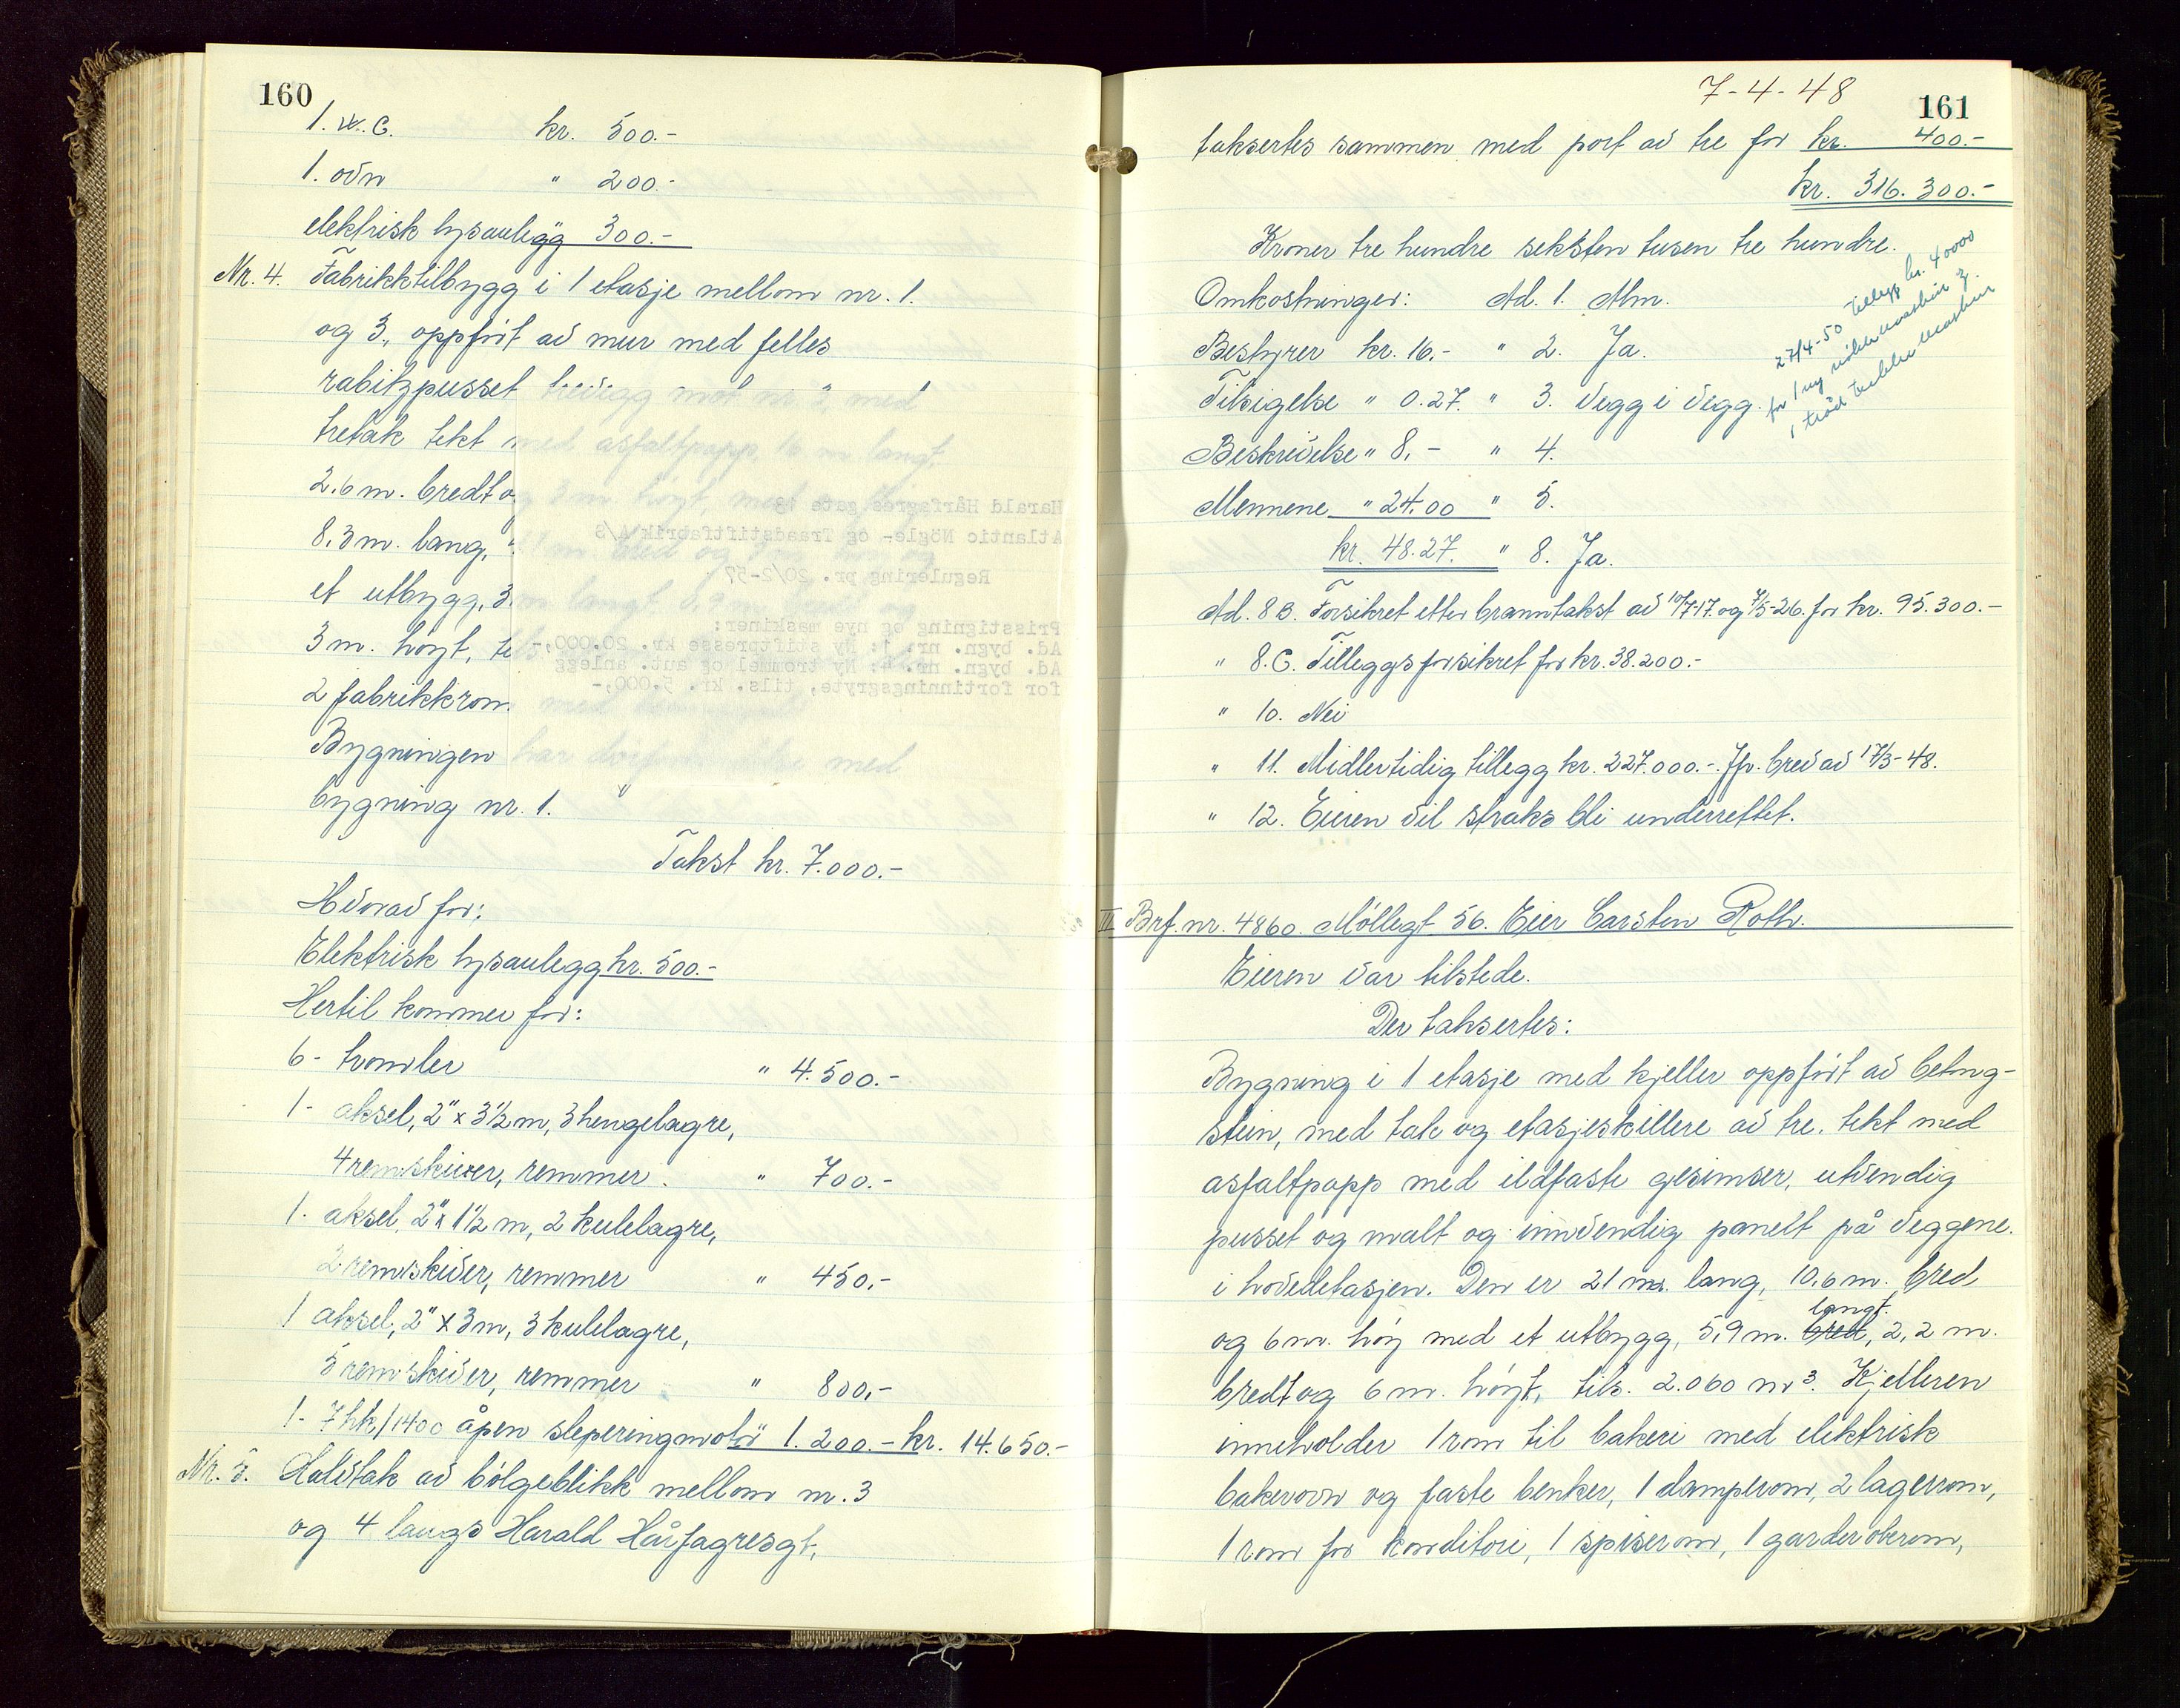 160
1. W.C. kr. 500.-
1. ovn " 200.-
elektrisk lysanlegg 300.-
Nr. 4. Fabrikktilbygg i 1 etasje mellom nr. 1.
og 3, oppført av mur med felles
rabitzpusset trevegg mot nr 3, med
tretak tekt med asfaltpapp, 16 m langt,
2.6 m. bredt og 3 m høyt, med
8.3 m. lang, 1 m. bred og
et utbygg, 3. m langt 0,9 m bred og
3 m. høyt, t
2 fabrikkrom med
Bygningen har dør med
bygning nr. 1.
Harald Hårfagres gate 18
Atlantic Nögle- og Traadstiftfabrik A/S
Regulering pr. 20/2-57
Prisstigning og nye maskiner:
Ad. bygn. nr. 1: Ny stiftpresse kr. 20.000,-
Ad. bygn. nr. 4: Ny trommel og aut. anlegg
for fortinningsgryte, tils. kr. 5.000,-
Takst kr. 7.000.-
Hvorav for:
Elektrisk lysanlegg kr. 500.-
Hertil kommer for:
6 - tromler " 4.500.-
1 - aksel, 2" x 3½ m, 3 hengelagre,
4 remskiver, remmer. " 700.-
1. aksel, 2" x 1½ m, 2 kulelagre,
2 remskiver, remmer " 450.-
1 aksel, 2" x 3 m, 3 kulelagre,
5 remskiver, remmer " 800.-
1 - 7 hk/1400 åpen sleperingmotor 1.200.- kr. 14.650.-
Nr. 5. Halvtak av bølgeblikk mellom nr. 3
og 4 langs Harald Hårfagresgt,
7-4-48
161
taksertes sammen med port av tre for kr. 400.-
kr. 316.300.-
Kroner tre hundre seksten tusen tre hundre.
Omkostninger: Ad. 1. Alm.
Bestyrer kr. 16.- " 2. Ja.
Tilsigelse " 0.27. " 3. Vegg i vegg.
Beskrivelse " 8.- " 4.
Mennene " 24.00 " 5.
kr. 48.27. " 8. Ja.
27/4-50 tillegg kr. 40000
for 1 ny maskin 3.
1 tråd maskin
Ad. 8 B. Forsikret etter branntakst av 10/7-17 og 7/5-26. for kr. 95.300.-
" 8. C. Tilleggsforsikret for kr. 38.200.-
" 10. Nei
" 11. Midlertidig tillegg kr. 227.000.-. Jfr. brev av 17/3-48.
" 12. Eieren vil straks bli underrettet.
II Brf. nr. 4860. Møllegt 56. Eier Carsten Roth.
Eieren var tilstede.
Der taksertes:
Bygning i 1 etasje med kjeller oppført av betong-
stein, med tak og etasjeskillere av tre. tekt med
asfaltpapp med ildfaste gesimser, utvendig
pusset og malt og innvendig panelt på veggene.
i hovedetasjen. Den er 21 m. lang, 10.6 m. bred
og 6 m. høy med et utbygg, 5,9 m. bred langt, 2,2 m.
bredt og 6 m. høyt, tils. 2.060 m³. Kjelleren
inneholder 1 rom til bakeri med elektrisk
bakerovn og faste benker, 1 damprom, 2 lagerrom,
1 rom for konditori, 1 spiserom, 1 garderoberom,